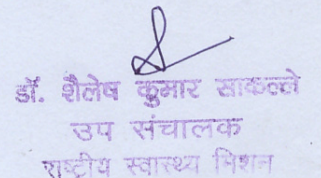 डॉ. शैलेष कुमार साकल्ले
उप संचालक
राष्ट्रीय स्वास्थ्य मिशन